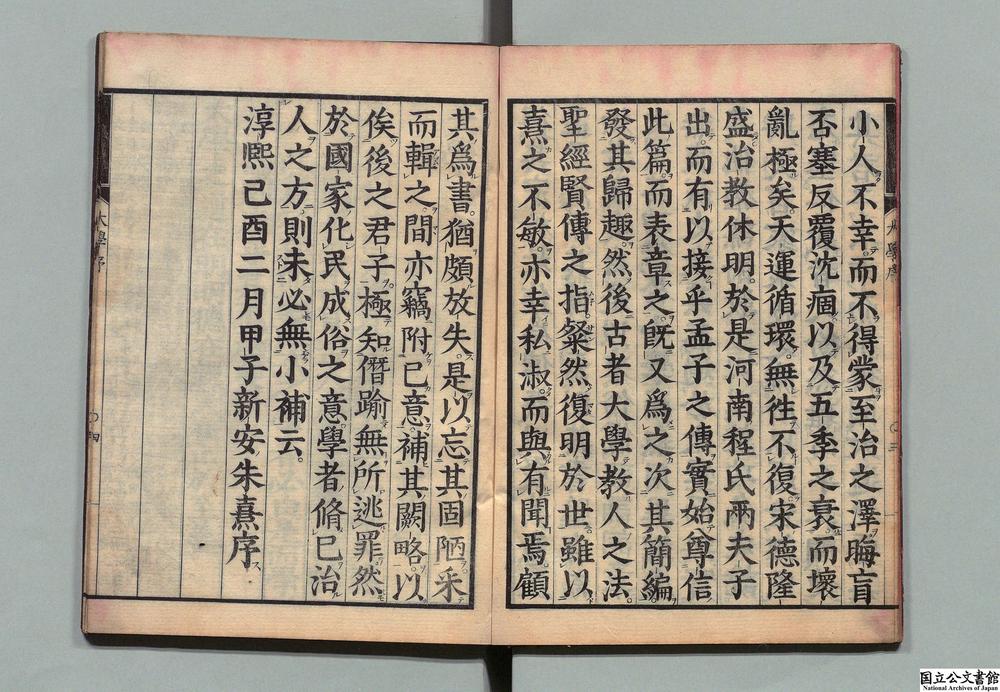 小人不幸而不得蒙至治之澤晦盲
否塞反覆沈痼以及五季之衰而壞
亂極矣天運循環無徃不復宋德隆
盛治教休明於是河南程氏兩夫子
出而有以接乎孟子之傳實始尊信
此篇而表章之旣又爲之次其簡編
發其歸趣然後古者大學教人之法
聖經賢傳之指粲然復明於世雖以
熹之不敏亦幸私淑而與有聞焉顧
其爲書猶頗放失是以忘其固陋采
而輯之間亦竊附己意補其闕略以
俟後之君子極知僭踰無所逃罪然
於國家化民成俗之意學者脩己治
人之方則未必無小補云
淳熙己酉二月甲子新安朱熹序
大學序
三
大學序
四
国立公文書館
National Archives of Japan